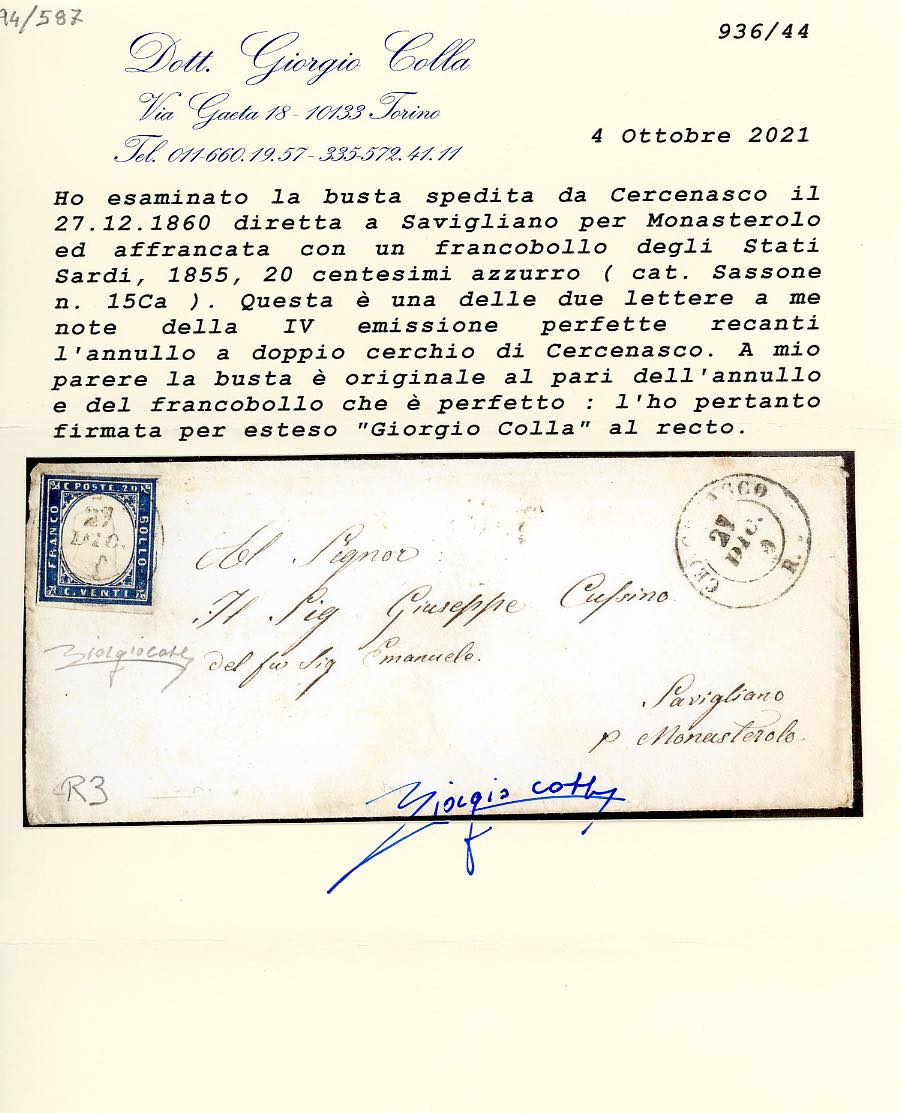 94/587
936/44
Dott. Giorgio Colla
Via Gaeta 18 - 10133 Torino
Tel. 011-660.19.57 - 335-572.41.11
4 Ottobre 2021
Ho esaminato la busta spedita da Cercenasco il
27.12.1860 diretta a Savigliano per Monasterolo
ed affrancata con un francobollo degli Stati
Sardi, 1855, 20 centesimi azzurro ( cat. Sassone
n. 15Ca ). Questa è una delle due lettere a me
note della IV emissione perfette recanti
l'annullo a doppio cerchio di Cercenasco. A mio
parere la busta è originale al pari dell'annullo
e del francobollo che è perfetto : l'ho pertanto
firmata per esteso "Giorgio Colla" al recto.
C POSTE 20
FRANCO
BOLLO
C. VENTI
27
DIC.
27
DIC.
R.
Al Signor
Il Sig Giuseppe
del fu Sig Emanuele.
Savigliano
p Monasterolo
Giorgio Colla
R3
Giorgio Colla